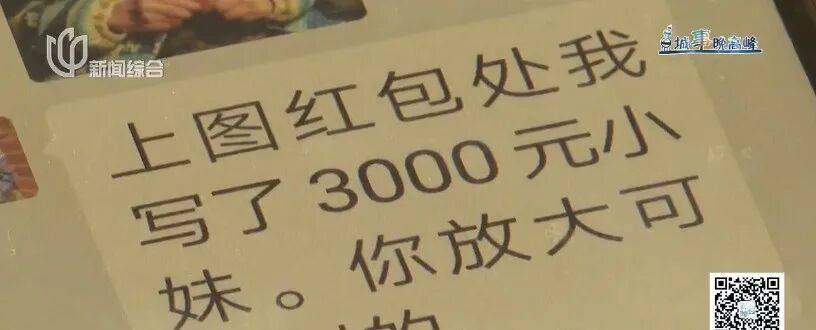 新闻综合
城事晚高峰
上图红包处我
写了3000元小
妹。你放大可